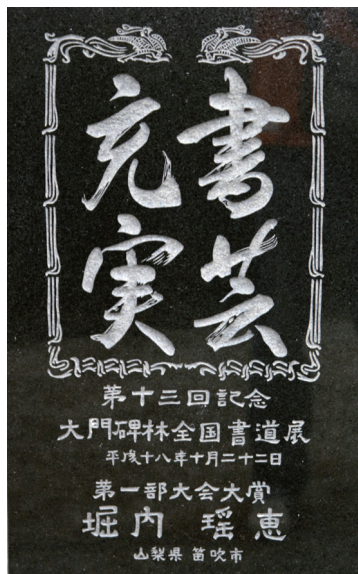 書芸
充実
第十三回記念
大門碑林全国書道展
平成十八年十月二十二日
第一部大会大賞
堀内 瑶恵
山梨県 笛吹市